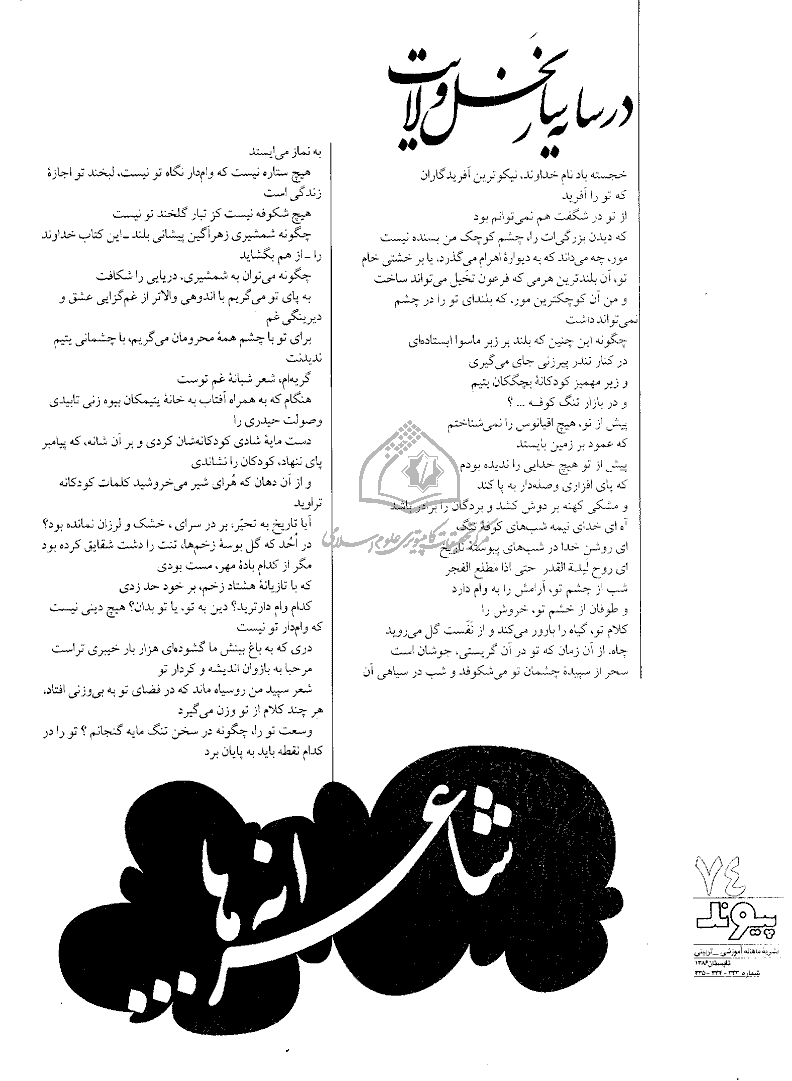 در سایه سار نخل ولایت
خجسته باد نام خداوند، نیکوترین آفریدگاران
که تو را آفرید
از تو در شگفت هم نمی‌توانم بود
که دیدن بزرگی‌ات را، چشم کوچک من بسنده نیست
مور، چه می‌داند که به دیوارهٔ اهرام می‌گذرد، یا بر خشتی خام
تو، آن بلندترین هرمی که فرعون تخیل می‌تواند ساخت
و من آن کوچکترین مور، که بلندای تو را در چشم
نمی‌تواند داشت
چگونه این چنین که بلند بر زبر ماسوا ایستاده‌ای
در کنار تندر پیرزنی جای می‌گیری
و زیر مهمیز کودکانهٔ بچگکان یتیم
و در بازار تنگ کوفه ... ؟
پیش از تو، هیچ اقیانوس را نمی‌شناختم
که عمود بر زمین بایستد
پیش از تو هیچ خدایی را ندیده بودم
که پای افزاری وصله‌دار به پا کند
و مشکی کهنه بر دوش کشد و بردگان را برادر باشد
آه ای خدای نیمه شب‌های کوفهٔ تنگ
ای روشن خدا در شب‌های پیوسته تاریخ
ای روح لیلة القدر حتی اذا مطلع الفجر
شب از چشم تو، آرامش را به وام دارد
و طوفان از خشم تو، خروش را
کلام تو، گیاه را بارور می‌کند و از نَفَست گل می‌روید
چاه، از آن زمان که تو در آن گریستی، جوشان است
سحر از سپیدهٔ چشمان تو می‌شکوفد و شب در سیاهی آن
به نماز می‌ایستد
هیچ ستاره نیست که وام‌دار نگاه تو نیست، لبخند تو اجازهٔ
زندگی است
هیچ شکوفه نیست کز تبار گلخند تو نیست
چگونه شمشیری زهرآگین پیشانی بلند ـ این کتاب خداوند
را ـ از هم بگشاید
چگونه می‌توان به شمشیری، دریایی را شکافت
به پای تو می‌گریم با اندوهی والاتر از غم‌گزایی عشق و
دیرینگی غم
برای تو با چشم همهٔ محرومان می‌گریم، با چشمانی یتیم
ندیدنت
گریه‌ام، شعر شبانهٔ غم توست
هنگام که به همراه آفتاب به خانهٔ یتیمکان بیوه زنی تابیدی
وصولت حیدری را
دست مایهٔ شادی کودکانه‌شان کردی و بر آن شانه، که پیامبر
پای ننهاد، کودکان را نشاندی
و از آن دهان که هُرای شیر می‌خروشید کلمات کودکانه
تراوید
آیا تاریخ به تحیّر، بر در سرای ، خشک و لرزان نمانده بود؟
در اُحُد که گل بوسهٔ زخم‌ها، تنت را دشت شقایق کرده بود
مگر از کدام بادهٔ مهر، مست بودی
که با تازیانهٔ هشتاد زخم، بر خود حد زدی
کدام وام دارترید؟ دین به تو، یا تو بدان؟ هیچ دینی نیست
که وام‌دار تو نیست
دری که به باغ بینش ما گشوده‌ای هزار بار خیبری تراست
مرحبا به بازوان اندیشه و کردار تو
شعر سپید من روسیاه ماند که در فضای تو به بی‌وزنی افتاد،
هر چند کلام از تو وزن می‌گیرد
وسعت تو را، چگونه در سخن تنگ مایه گنجانم ؟ تو را در
کدام نقطه باید به پایان برد
شاعرانه‌ها...
مرکز تحقیقات کامپیوتری علوم اسلامی
۷۴
پیوند
نشریه ماهانه آموزشی ـ تربیتی
تابستان ۱۳۸۶
شماره ۳۳۳ - ۳۳۴ - ۳۳۵